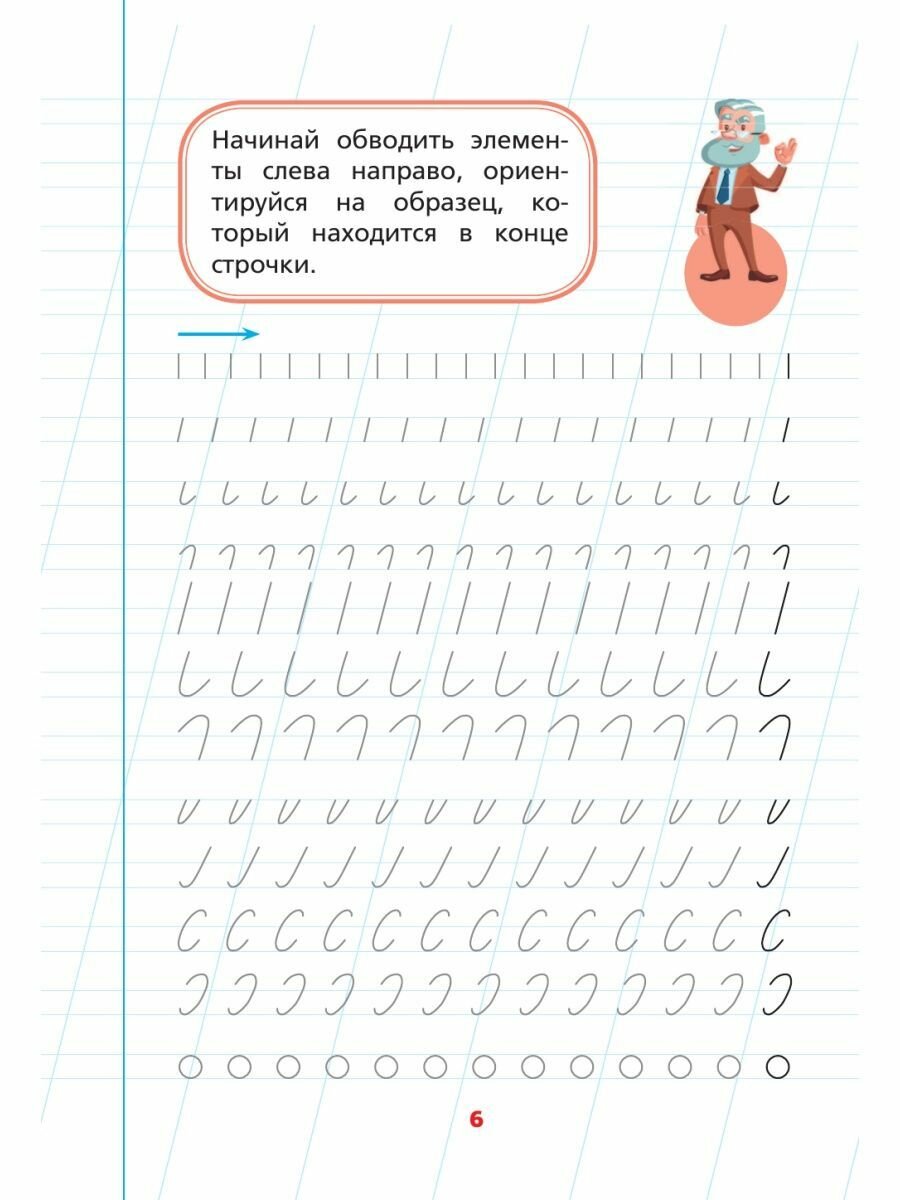 Начинай обводить элемен-
ты слева направо, ориен-
тируйся на образец, ко-
торый находится в конце
строчки.
6